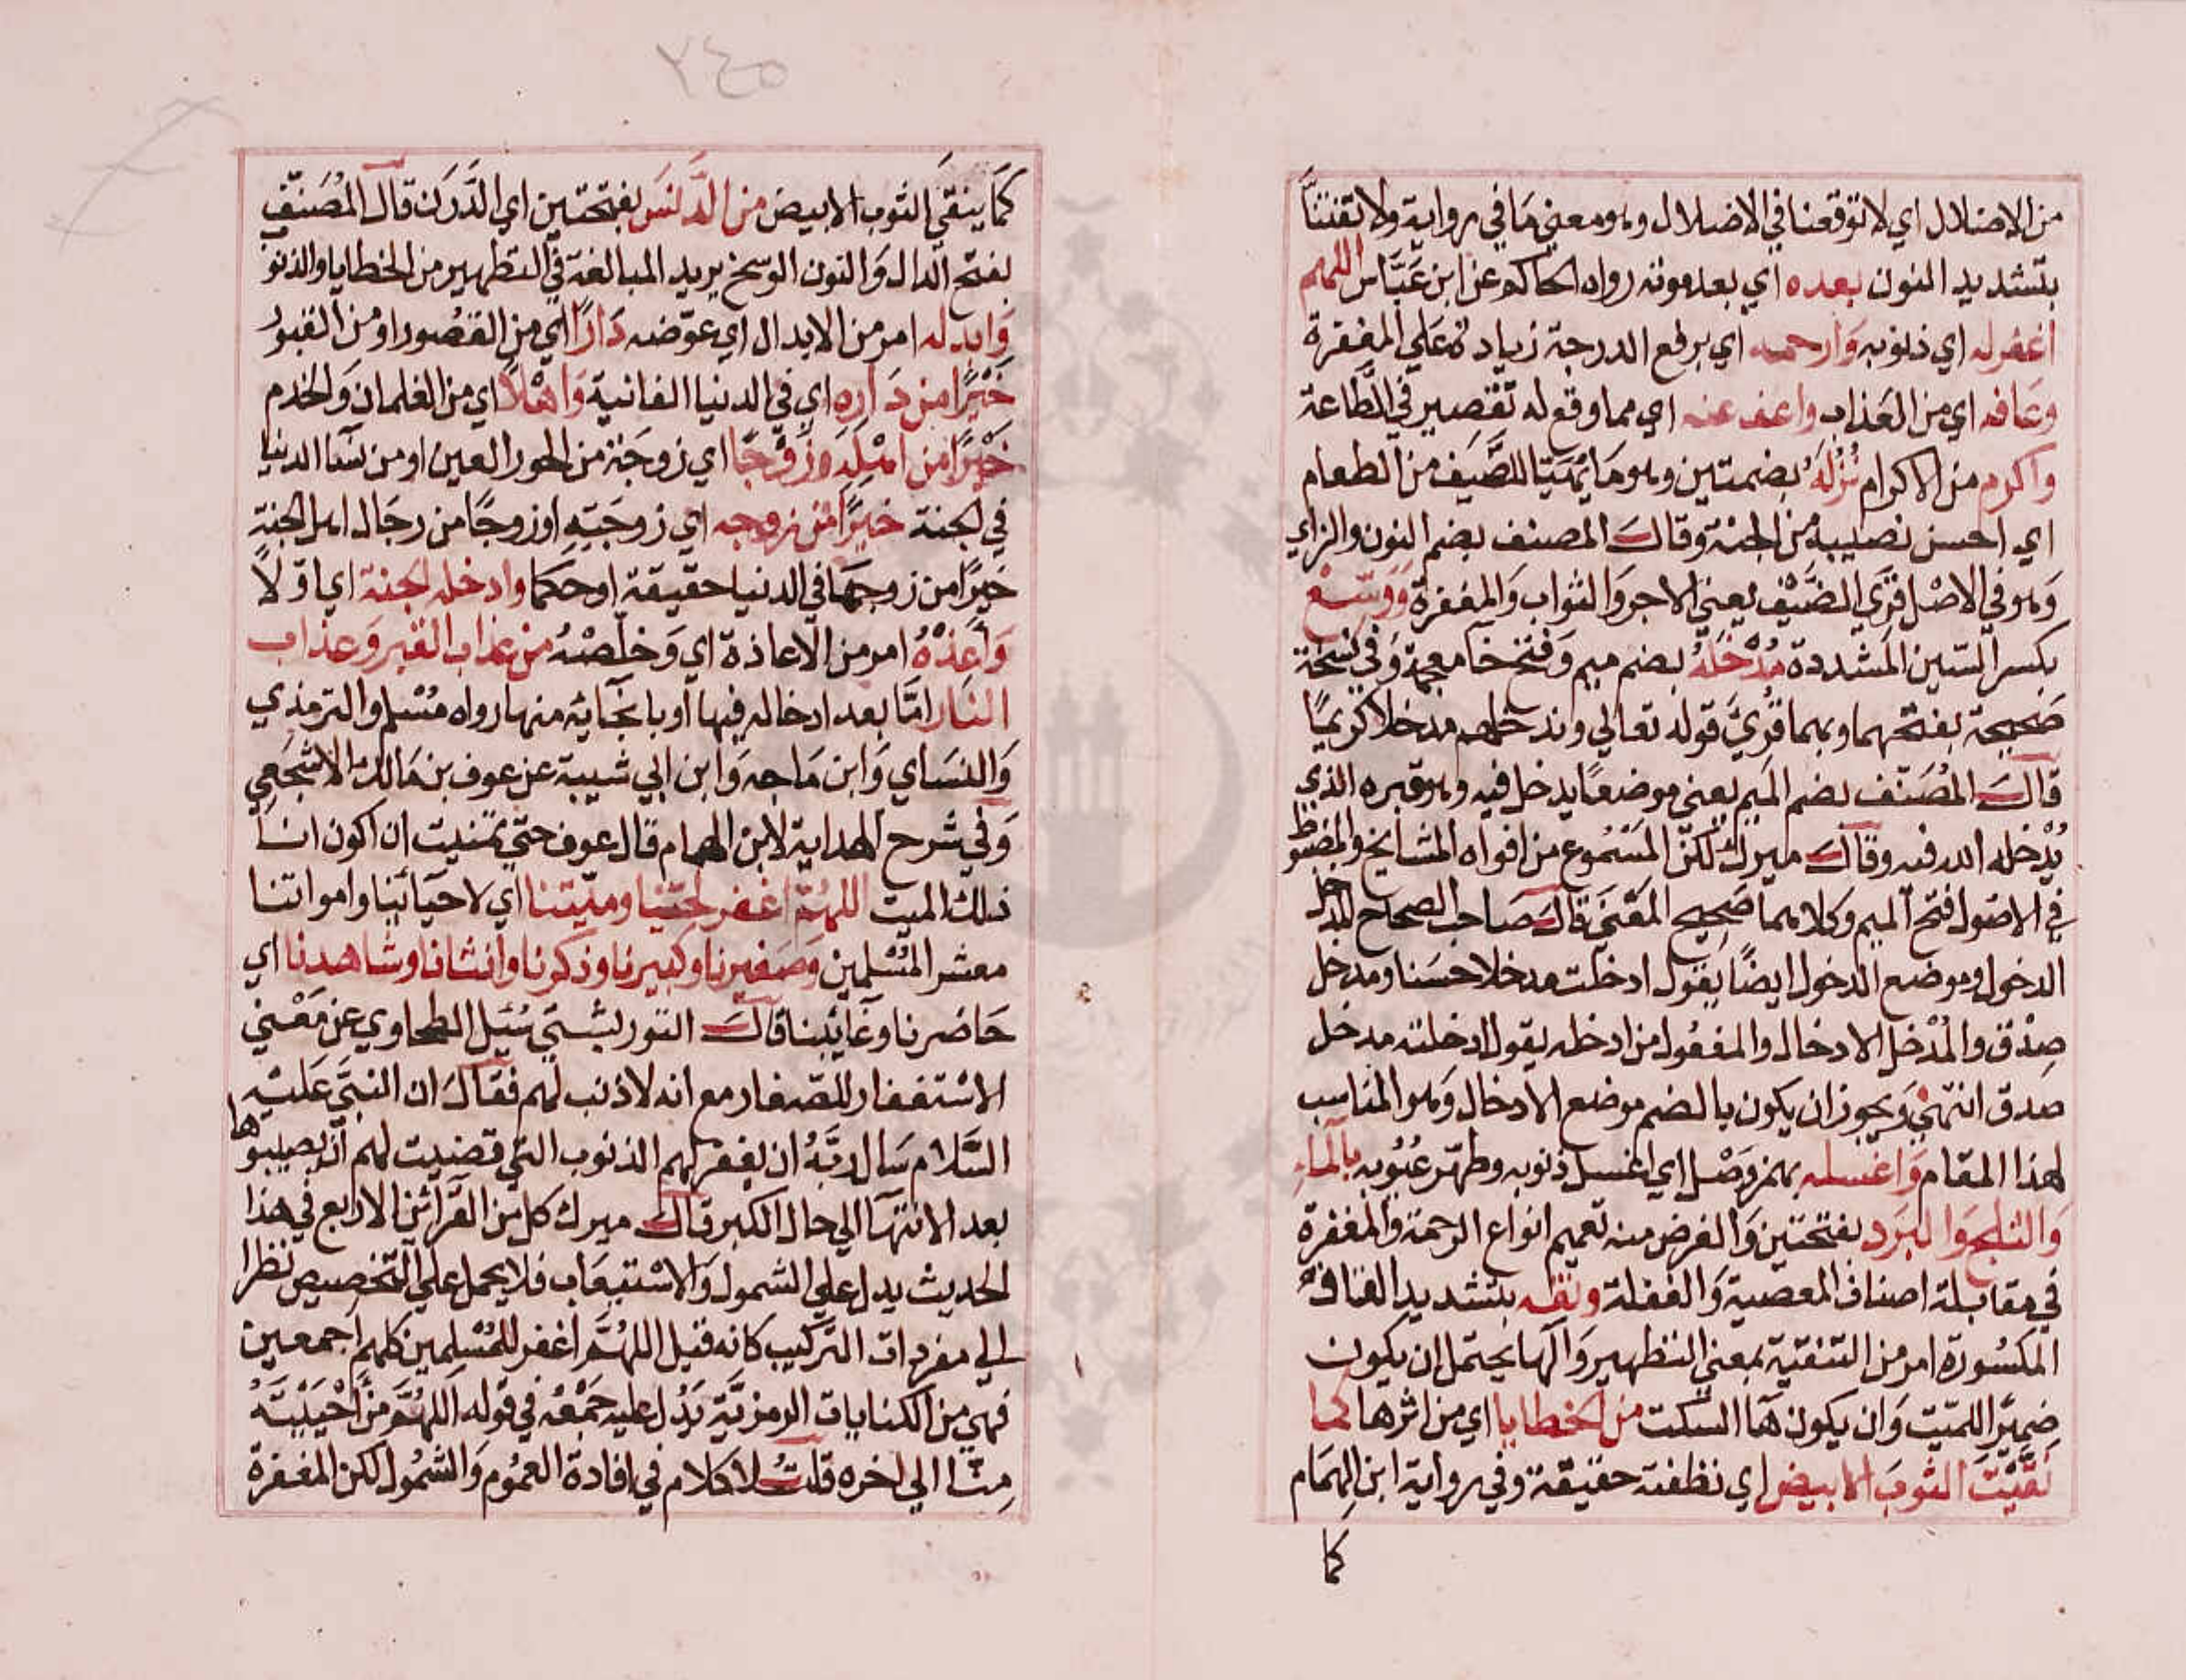 من الاضلال اي لا توقعنا في الاضلال وهو معني ما في رواية ولا تفتنا
بتشديد النون بعده اي بعد موته رواه الحاكم عن ابن عَبَّاس اللهم
اغفر له اي ذنوبه وَارحمه اي برفع الدرجة زيادة علي المغفرة
وعَافه اي من العَذاب واعف عنه اي مما وقع له تقصير في الطَّاعة
واكرم من الاكرام نُزُلهُ بضمتين وهو مَا يُهَيَّا للضَّيف من الطعام
اي احسن نصيبه من الجنة وقالَ المصنف بضم النون والزاي
وَهو في الاصْل قِرَي الضَّيْف يعني الاجر وَالثواب وَالمغفرة وَوَسِّعْ
بكسر السّين المشددة مُدْخَلَهُ بضم ميم وَفتح خا معجمة وَفي نسخة
صَحيحة بفتحهما وبهما قُرِيَ قوله تعالي وندخلهم مدخلا كريمًا
قالَ المُصَنّف بضم الميم يعني موضعًا يدخل فيه وهو قبره الذي
يُدْخله الله فيه وقالَ ميرك لكنّ المسْمُوع من افواه المشايخ والمضبوط
في الاصُول فتح الميم وكلاهما صَحِيح المَعْني قالَ صَاحب الصحاح المدخل
الدخول وموضع الدخول ايضًا يقول ادخلت مدخلا حسَنا ومدخل
صِدْق والمُدْخل الادخال والمفعُول من ادخله يقول ادخلته مدخل
صدق انتهي وَيجوز ان يكون بالضم موضع الادخال وَهو المناسب
لهذا المقام وَاغسله بهمز وَصْل اي اغسل ذنوبه وطهّر عيُوبه بالماء
وَالثلج وَالبَرَد بفتحتين وَالغرض منه تعميم انواع الرحمة وَالمغفرة
في مقابلة اصناف المعصية وَالغفلة ونقه بتشديد القاف
المكسُورة امر من التنقية بمعني التطهير وَالها يحتمل ان يكون
ضميرًا للميّت وَان يكون هَا السكت من الخطايا اي من اثرها كما
نَقَّيْتَ الثوبَ الابيض اي نظفته حقيقة وفي رواية ابن الهمَام
كما
٢٤٥
كَما يُنقَي الثوب الابيض من الدَّنسَ بفتحتين اي الدَّرَن قالَ المُصَنّف
بفتح الدال وَالنون الوسخ يريد المبالغة في التطهير من الخطايا والذنو
وَابدله امر من الابدال اي عوّضه دَارًا اي من القصُور او من القبوُر
خَيْرًا من دَاره اي في الدنيا الفانية وَاهْلًا اي من الغلمان وَالخدم
خَيْرًا من اهْلِه وَزَوْجًا اي زوجَة من الحور العين او من نسَا الدنيا
في الجنة خيرًا من زوجه اي زوجَتِه او زوجًا من رجَال اهل الجنة
خيرًا من زوجهَا في الدنيا حقيقة او حكما وادخله الجنة اي اوّلًا
وَأعِذْهُ امر من الاعاذة اي وَخلّصْهُ من عذاب القبر وَعذاب
النَار امَّا بعد ادخاله فيها أو بانجَائه منها رواه مُسْلم والترمذي
وَالنسَاي وَابن مَاجه وَابن ابي شيبة عن عوف بن مَالك الاشجَعي
وَفي شرح الهداية لابن الهمام قال عوف حتي تمنيت ان اكون انا
ذلك الميت اللهُمَّ اغفر لحيّنا وميّتنا اي لاحيَائنا وامواتنا
معشر المُسْلمين وَصَغيرنا وكبيرنا وذكرنا وانثانا وشاهدنا اي
حَاضرنا وغَائبنا قالَ التوربشتي سُئل الطحاوي عن مَعْني
الاسْتغفار للصّغار مع انه لا ذنب لهم فقالَ ان النبيَّ عَليْه
السَّلام سَال ربّهُ ان يغفر لهم الذنوب التي قضيت لهم ان يصيبوها
بعد الانتهَا الي حال الكبر قالَ ميرك كل من القرَائن الاربع في هذا
الحديث يدل علي الشمول وَالاسْتيعَاب فلا يحمل علي التخصيص نظرا
الي مفردات التركيب كانه قيل اللهُمَّ اغفر للمُسْلِمين كلهم اجمعين
فهي من الكنايات الرمزيَّة يَدُل عليه جَمْعُه في قوله اللهُمَّ مَنْ أحْيَيْتَهُ
مِنا الي اخره قلتُ لا كلام في افادة العمُوم وَالشمُول لكن المغفرة